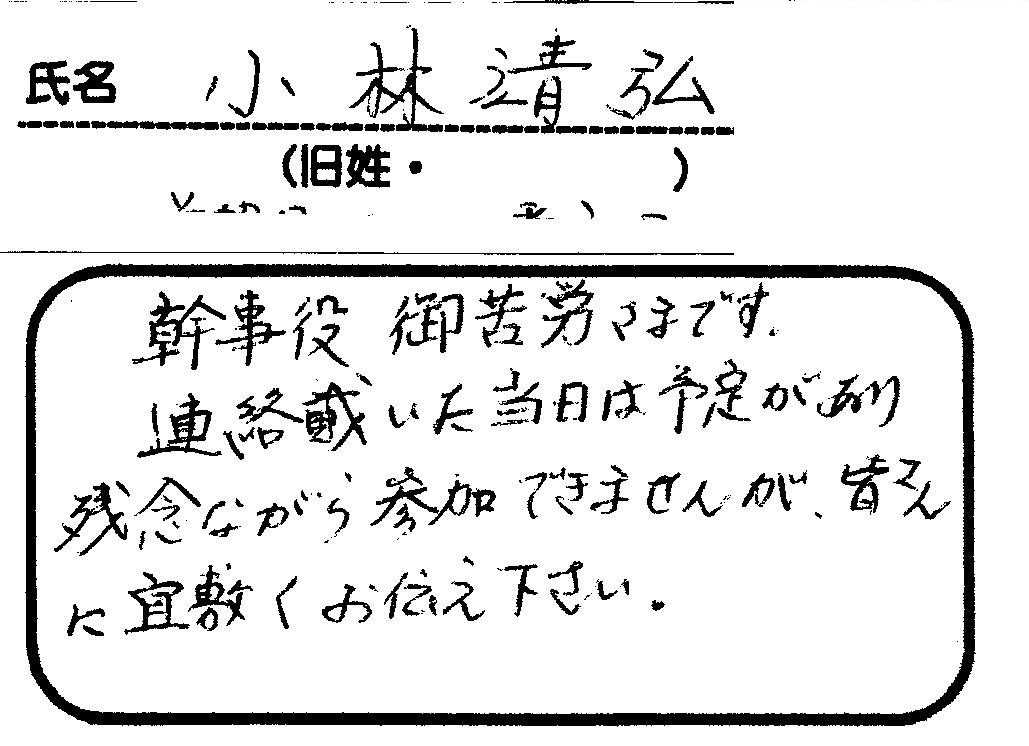 氏名 小林靖弘
(旧姓・ )
幹事役 御苦労さまです.
連絡戴いた当日は予定があり
残念ながら参加できませんが、皆さん
に宜敷くお伝え下さい.